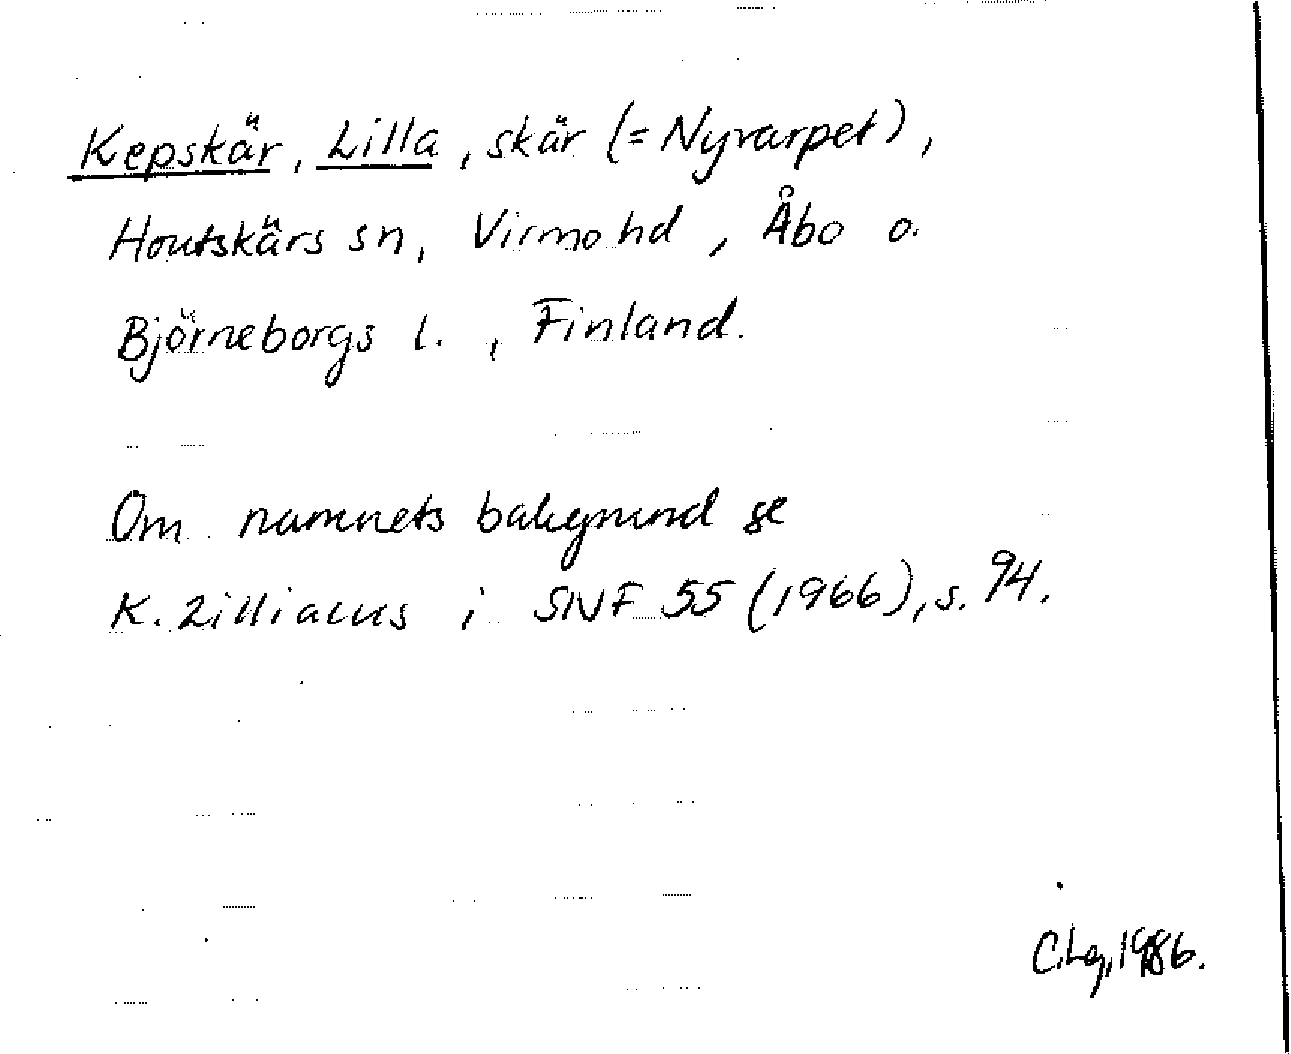 Kepskär, Lilla, skär (= Nyvarpet),
Houtskärs sn, Virmo hd, Åbo o.
Björneborgs l., Finland.
Om namnets bakgrund se
K. Zilliacus i SNF 55 (1966), s. 94.
C.Lg, 1986.